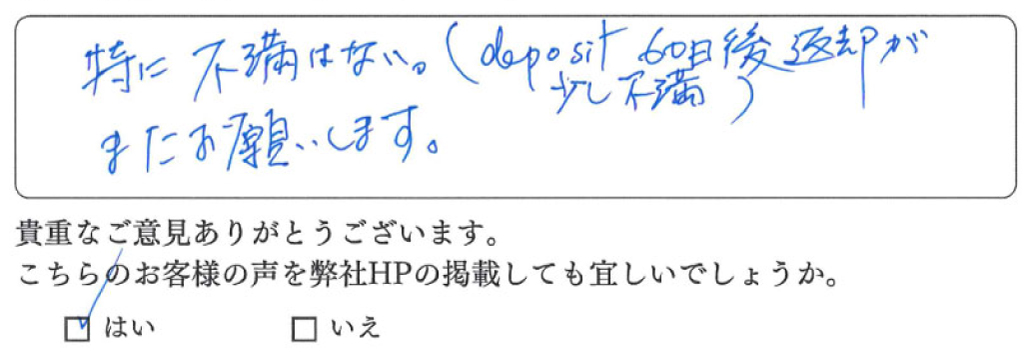 特に不満はない。(deposit 60日後返却が
少し不満)
またお願いします。
貴重なご意見ありがとうございます。
こちらのお客様の声を弊社HPの掲載しても宜しいでしょうか。
はい いえ